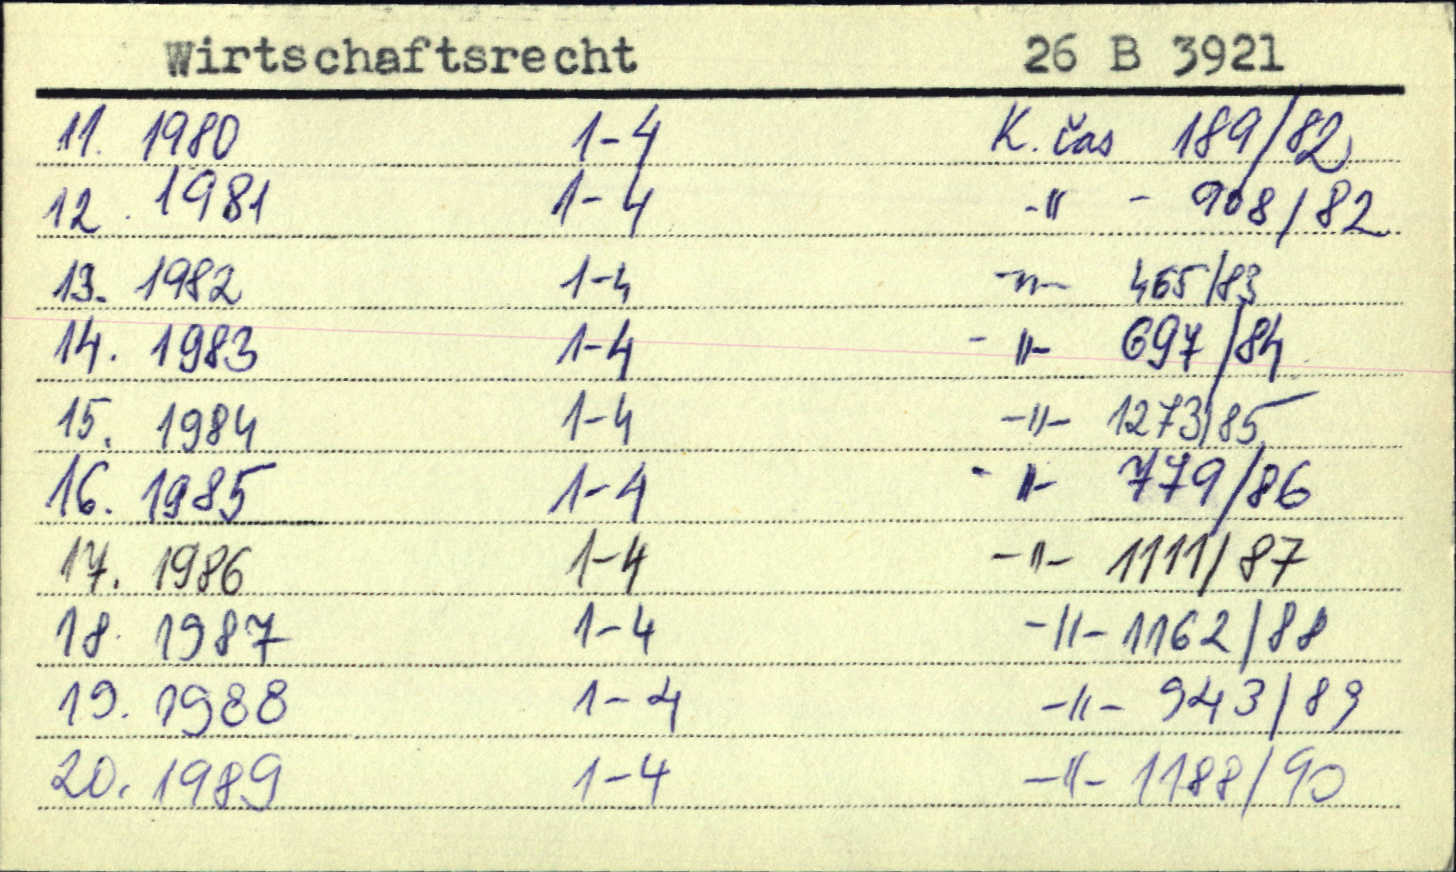 Wirtschaftsrecht 26 B 3921
11. 1980 1-4 K. čas 189/82
12. 1981 1-4 -"- 908/82
13. 1982 1-4 -"- 465/83
14. 1983 1-4 -"- 697/84
15. 1984 1-4 -"- 1273/85
16. 1985 1-4 -"- 779/86
17. 1986 1-4 -"- 1111/87
18. 1987 1-4 -"- 1162/88
19. 1988 1-4 -"- 943/89
20. 1989 1-4 -"- 1188/90